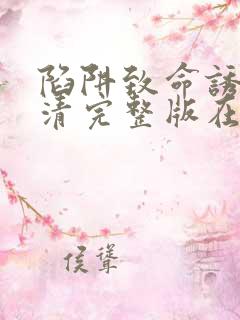 陷阱致命誘
清完整版在
侯聳